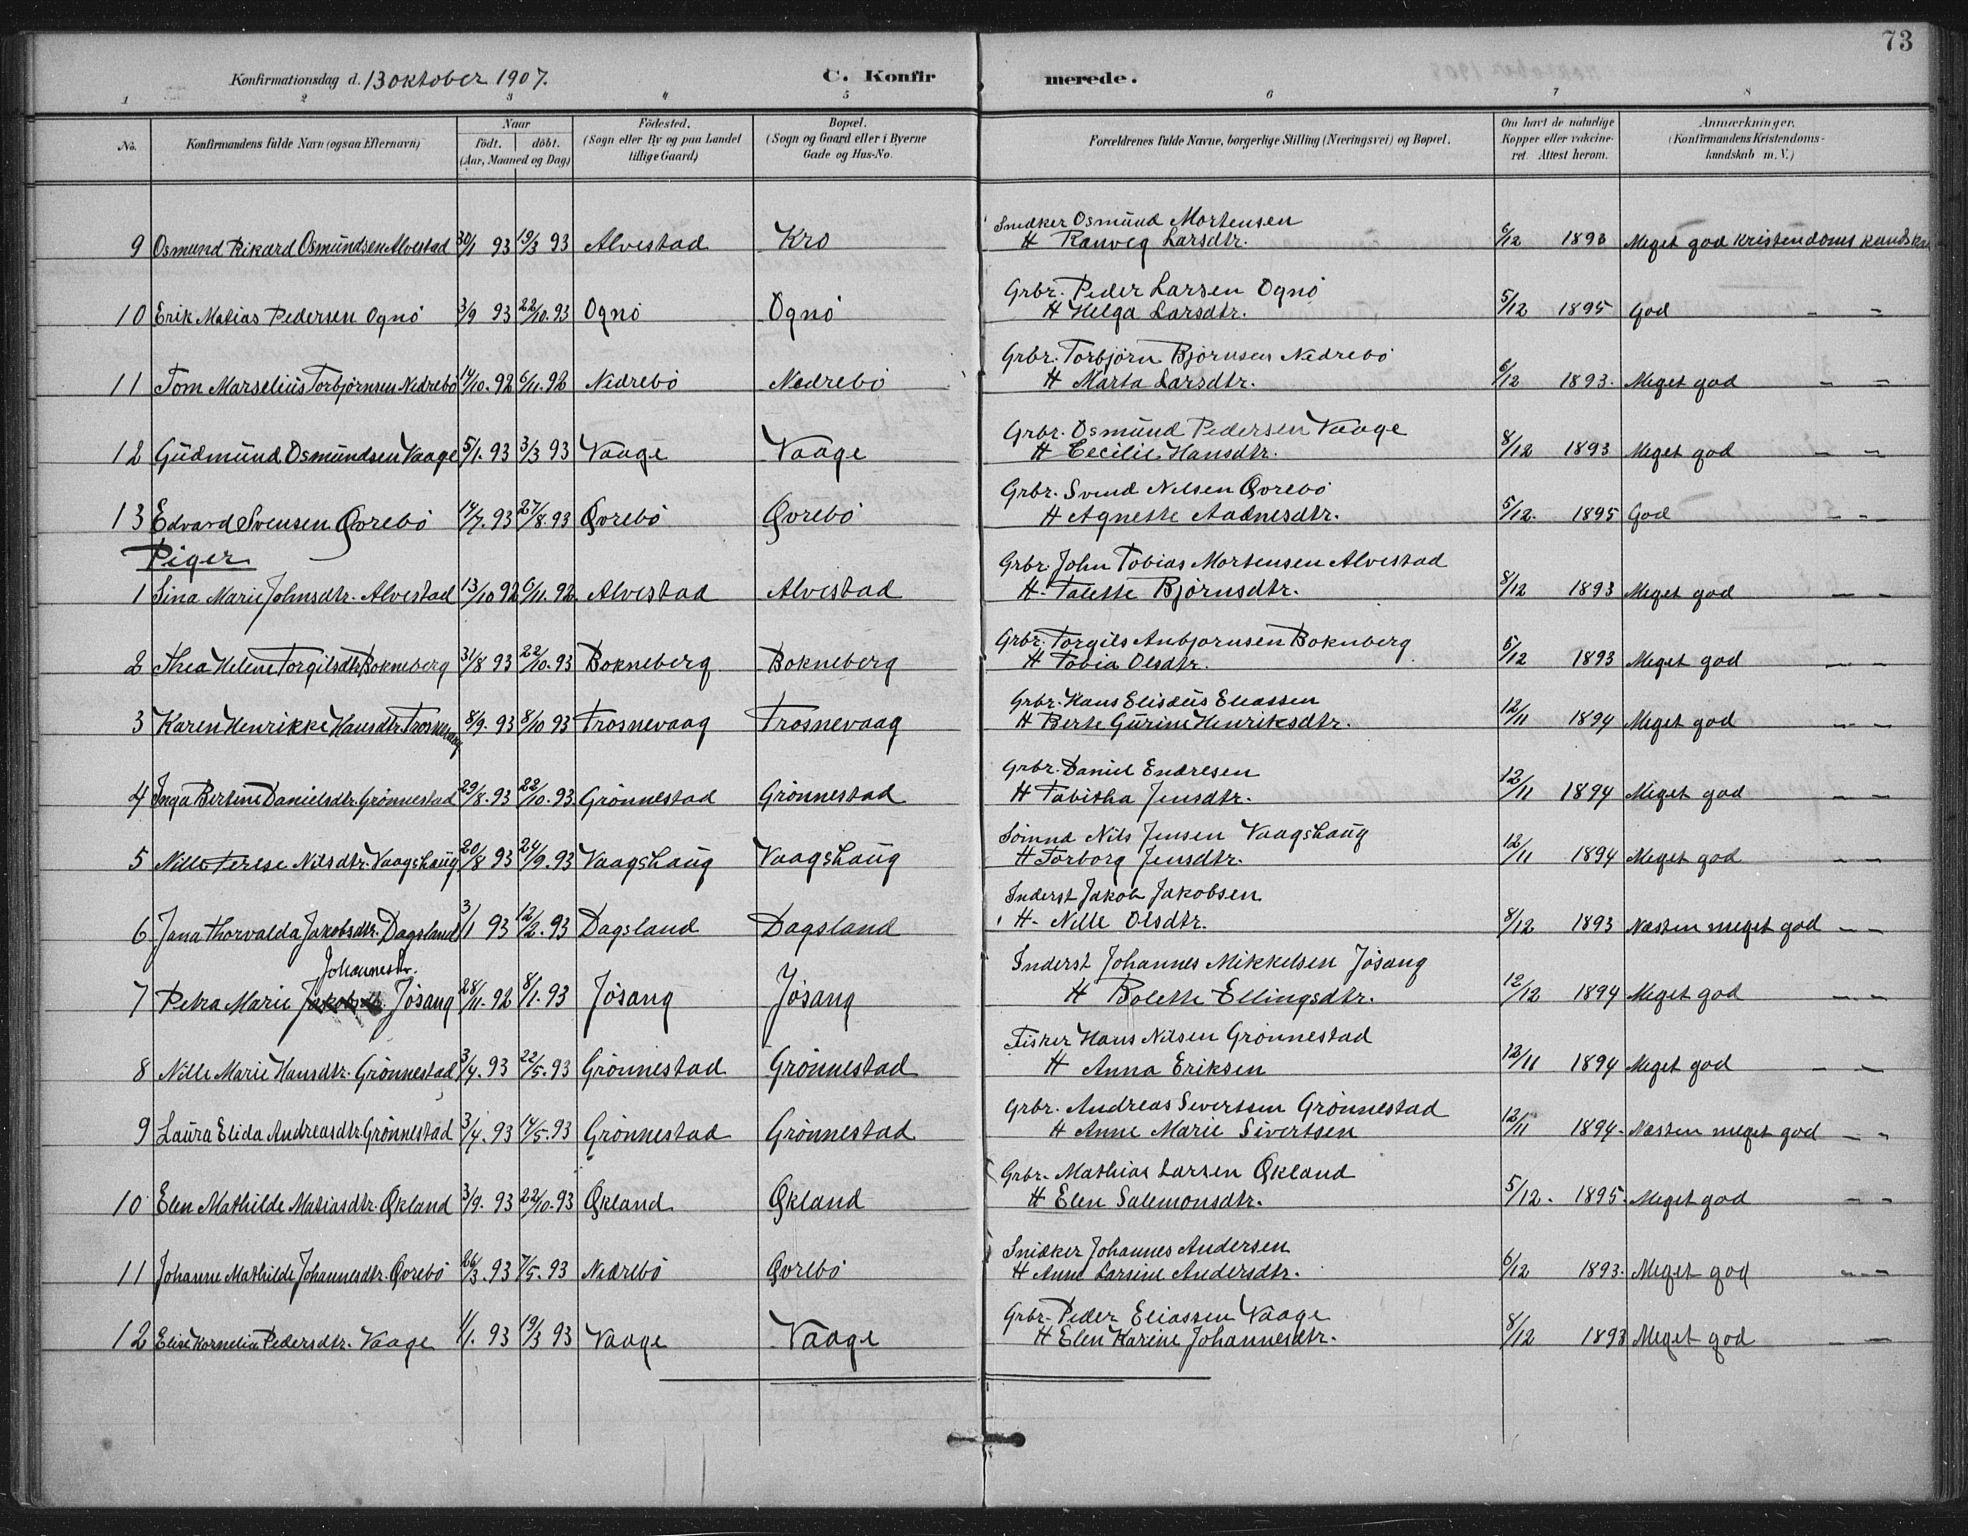 73
Konfirmationsdag d. 13 oktober 1907. C. Konfirmerede.
1 2 3 4 5 6 7 8
No. Konfirmandens fulde Navn (ogsaa Efternavn) Naar födt. döbt. (Aar, Maaned og Dag) Födested. (Sogn eller By og paa Landet tillige Gaard) Bopæl. (Sogn og Gaard eller i Byerne Gade og Hus-No. Forældrenes fulde Navne, borgerlige Stilling (Næringsvei) og Bopæl. Om havt de naturlige Kopper eller vakcineret. Attest herom. Anmærkninger. (Konfirmandens Kristendomskundskab m. V.)
Snedker Osmund Mortensen
9 Osmund Rikard Osmundsen Alvestad 30/1 93 19/3 93 Alvestad Kro H Ranveg Larsdtr. 6/12 1893 Meget god Kristendoms
Grbr. Peder Larsen Ognö
10 Erik Matias Pedersen Ognö 3/9 93 22/10. 93 Ognö Ognö H Helga Larsdtr. 5/12 1895 God — —
Grbr. Torbjörn Björnsen Nedrebö
11 Tom Marselius Torbjörnsen Nedrebö 14/10. 92 6/11. 92 Nedrebö Nedrebö H Marta Larsdtr. 6/12 1893. Meget god — —
Grbr. Osmund Pedersen Vaage
12 Gudmund Osmundsen Vaage 5/1. 93 3/3 93 Vaage Vaage H Cecilie Hansdtr. 8/12 1893 Meget god — —
Grbr. Svend Nilsen Qvrebö
13 Edvard Svensen Qvrebö 14/7. 93 27/8. 93 Qvrebö Qvrebö H Agnette Aadnesdtr. 5/12. 1895 God — —
Piger
Grbr. John Tobias Mortensen Alvestad
1 Sina Marie Johnsdtr. Alvestad 13/10 92 6/11. 92. Alvestad Alvestad H. Talette Björnsdtr. 8/12 1893 Meget god — —
Grbr. Torgils Anbjornsen Boknberg
2 Thea Helene Torgilsdtr. Bokneberg 31/8 93 22/10. 93 Bokneberg Bokneberg H Tobia Olsdtr. 6/12 1893 Meget god — —
Grbr. Hans Elisæus Eliassen
3 Karen Henrikke Hansdtr. Trosnevaag 8/9. 93 8/10 93 Trosnevaag Trosnevaag H Berte Gurine Henriksdtr. 12/11 1894 Meget god — —
Grbr. Daniel Endresen
4 Inga Bertine Danielsdtr. Grönnestad 29/8. 93 22/10. 93 Grönnestad Grönnestad H Tabitha Jensdtr. 12/11 1894 Meget god — —
Sömnd Nils Jensen Vaagshaug
5 Nille Terese Nilsdtr. Vaagshaug 20/8 93 24/9. 93 Vaagshaug Vaagshaug H Torborg Jensdtr. 12/11 1894 Meget god — —
Inderst Jakob Jakobsen
6 Jana Thorvalda Jakobsdtr. Dagsland 3/1 93 12/2. 93 Dagsland Dagsland H. Nille Olsdtr. 8/12 1893 Næsten meget god — —
Inderst Johannes Mikkelsen Jösang
Johannesdtr.
7 Petra Marie Jakobsdtr. Jösang 28/11. 92 8/1. 93 Jösang Jösang H Bolette Ellingsdtr. 12/12 1894 Meget god — —
Fisker Hans Nilsen Grönnestad
8 Nille Marie Hansdtr. Grönnestad 3/4. 93 22/5. 93 Grönnestad Grönnestad H Anna Eriksen 12/11 1894 Meget god — —
Grbr. Andreas Sivertsen Grönnestad
9 Laura Elida Andreasdtr. Grönnestad 3/4. 93 14/5. 93 Grönnestad Grönnestad H Anne Marie Sivertsen 12/11 1894. Næsten meget god — —
Grbr. Mathias Larsen Qkland
10 Elen Mathilde Matiasdtr. Qkland 3/9. 93 22/10. 93 Qkland Qkland H Elen Salemonsdtr. 5/12. 1895. Meget god — —
Snidker Johannes Andersen
11 Johanne Mathilde Johannesdtr. Qvrebö 26/3. 93 7/5. 93 Nedrebö Qvrebö H Anne Larsine Andersdtr. 6/12 1893. Meget god — —
Grbr. Peder Eliassen Vaage
12 Elise Kornelia Pedersdtr. Vaage 1/1. 93 19/3 93 Vaage Vaage H Elen Karine Johannesdtr. 8/12 1893 Meget god — —